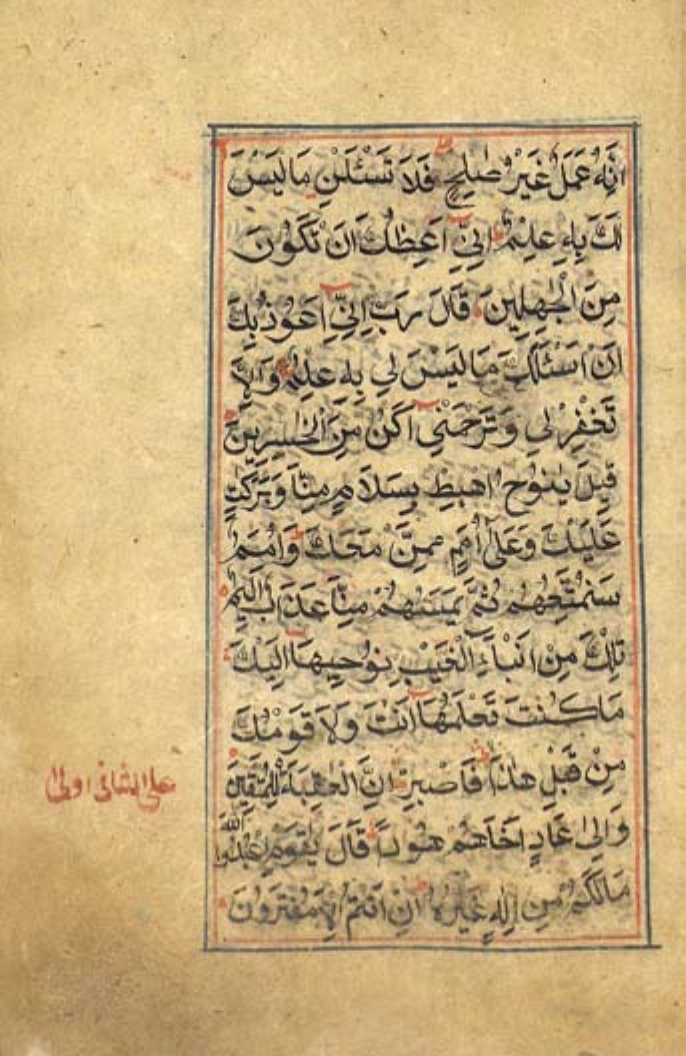 اِنَّهُ عَمَلٌ غَيْرُ صٰلِحٍ فَلَا تَسْئَلْنِ مَا لَيْسَ
لَكَ بِهٖ عِلْمٌ اِنِّيْ اَعِظُكَ اَنْ تَكُوْنَ
مِنَ الْجٰهِلِيْنَ قَالَ رَبِّ اِنِّيْ اَعُوْذُ بِكَ
اَنْ اَسْئَلَكَ مَا لَيْسَ لِيْ بِهٖ عِلْمٌ وَاِلَّا
تَغْفِرْ لِيْ وَتَرْحَمْنِيْ اَكُنْ مِنَ الْخٰسِرِيْنَ
قِيْلَ يٰنُوْحُ اهْبِطْ بِسَلَامٍ مِنَّا وَبَرَكٰتٍ
عَلَيْكَ وَعَلٰى اُمَمٍ مِمَّنْ مَعَكَ وَاُمَمٌ
سَنُمَتِّعُهُمْ ثُمَّ يَمَسُّهُمْ مِنَّا عَذَابٌ اَلِيْمٌ
تِلْكَ مِنْ اَنْبَاءِ الْغَيْبِ نُوْحِيْهَا اِلَيْكَ
مَا كُنْتَ تَعْلَمُهَا اَنْتَ وَلَا قَوْمُكَ
مِنْ قَبْلِ هٰذَا فَاصْبِرْ اِنَّ الْعٰقِبَةَ لِلْمُتَّقِيْنَ
وَاِلٰى عَادٍ اَخَاهُمْ هُوْدًا قَالَ يٰقَوْمِ اعْبُدُوا اللّٰهَ
مَا لَكُمْ مِنْ اِلٰهٍ غَيْرُهٗ اِنْ اَنْتُمْ اِلَّا مُفْتَرُوْنَ
على الثانى اولى